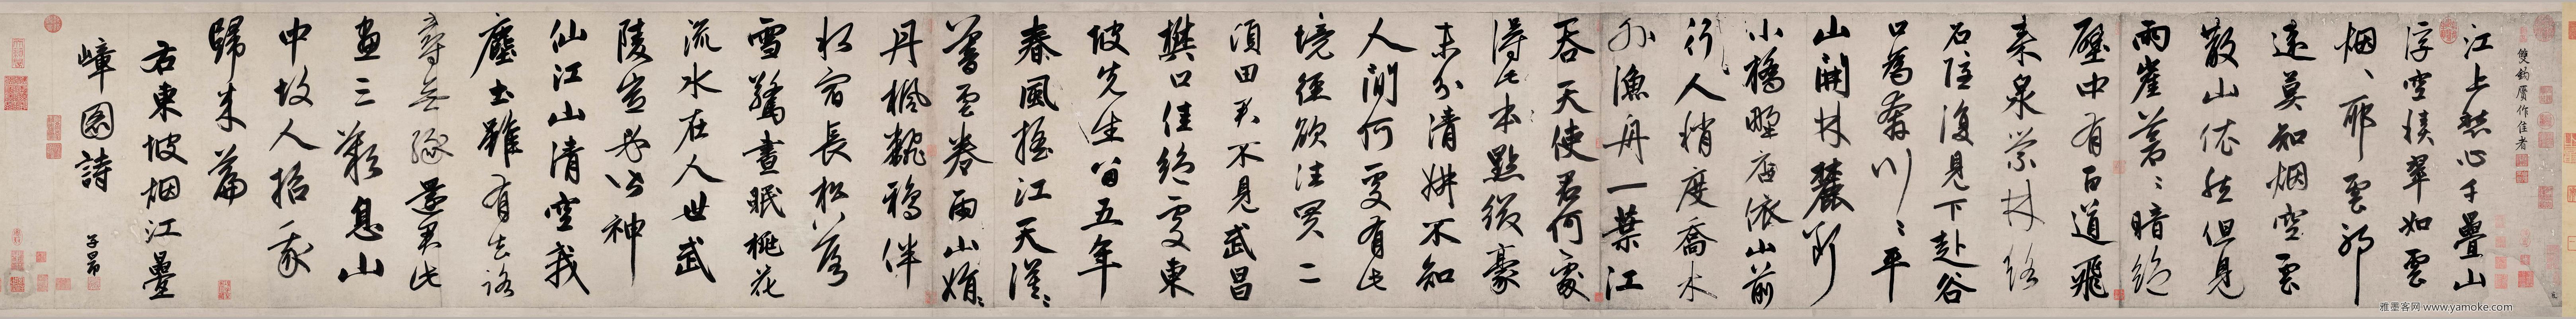 雙鈎贋作佳者
江上愁心千疊山
浮空積翠如雲
烟、耶雲耶
遠莫知烟空雲
散山依然但見
兩崖蒼〻暗絕
中有百道飛
來泉縈林絡
石隱復見下赴谷
口爲奔川〻平
山開林麓斷
小橋野店依山前
行人稍度喬木
外漁舟一葉江
吞天使君何處
得此本點綴豪
末分清妍不知
人間何處有此
境徑欲往買二
頃田君不見武昌
樊口佳絕處東
坡先生留五年
春風搖江天漠〻
暮雲卷雨山娟〻
丹楓飜鴉伴
水宿長松落
雪驚晝眠桃花
流水在人世武
陵豈必皆神
仙江山清空我
塵土雖有去路
尋無緣還君此
畫三歎息山
中故人招我
歸來篇
右東坡烟江疊
嶂圖詩 子昂
雅墨客网 www.yamoke.com